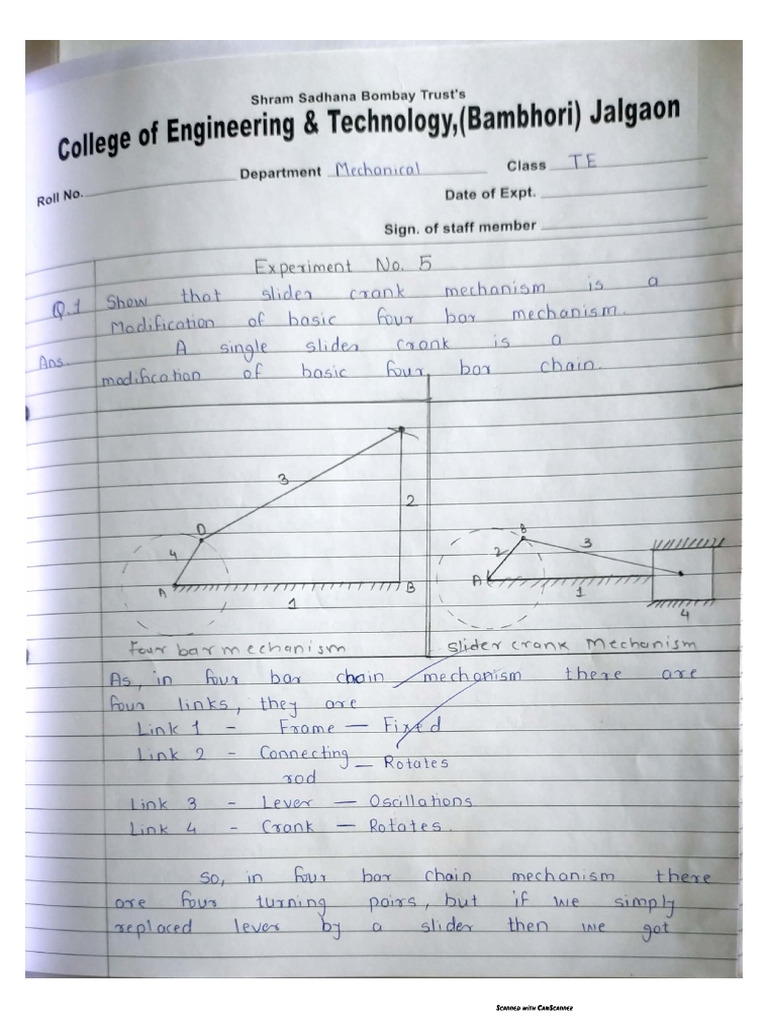 Shram Sadhana Bombay Trust's
College of Engineering & Technology,(Bambhori) Jalgaon
Roll No. Department Mechanical Class TE
Date of Expt.
Sign. of staff member
Experiment No. 5
Q.1 Show that slider crank mechanism is a
Modification of basic four bar mechanism.
Ans. A single slider crank is a
modification of basic four bar chain.
3
D
4
2
A
B
1
B
2
3
A
1
4
four bar mechanism
slider crank Mechanism
As, in four bar chain mechanism there are
four links, they are
Link 1 - Frame — Fixed
Link 2 - Connecting — Rotates
rod
Link 3 - Lever — Oscillations
Link 4 - Crank — Rotates.
So, in four bar chain mechanism there
are four turning pairs, but if we simply
replaced lever by a slider then we got
Scanned with CamScanner